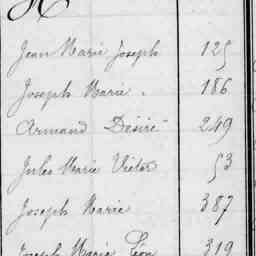 Jean Marie Joseph 125
Joseph Marie. 186
Armand Désiré 249
Jules Marie Victor 53
Joseph Marie 387
Joseph Marie Léon 319